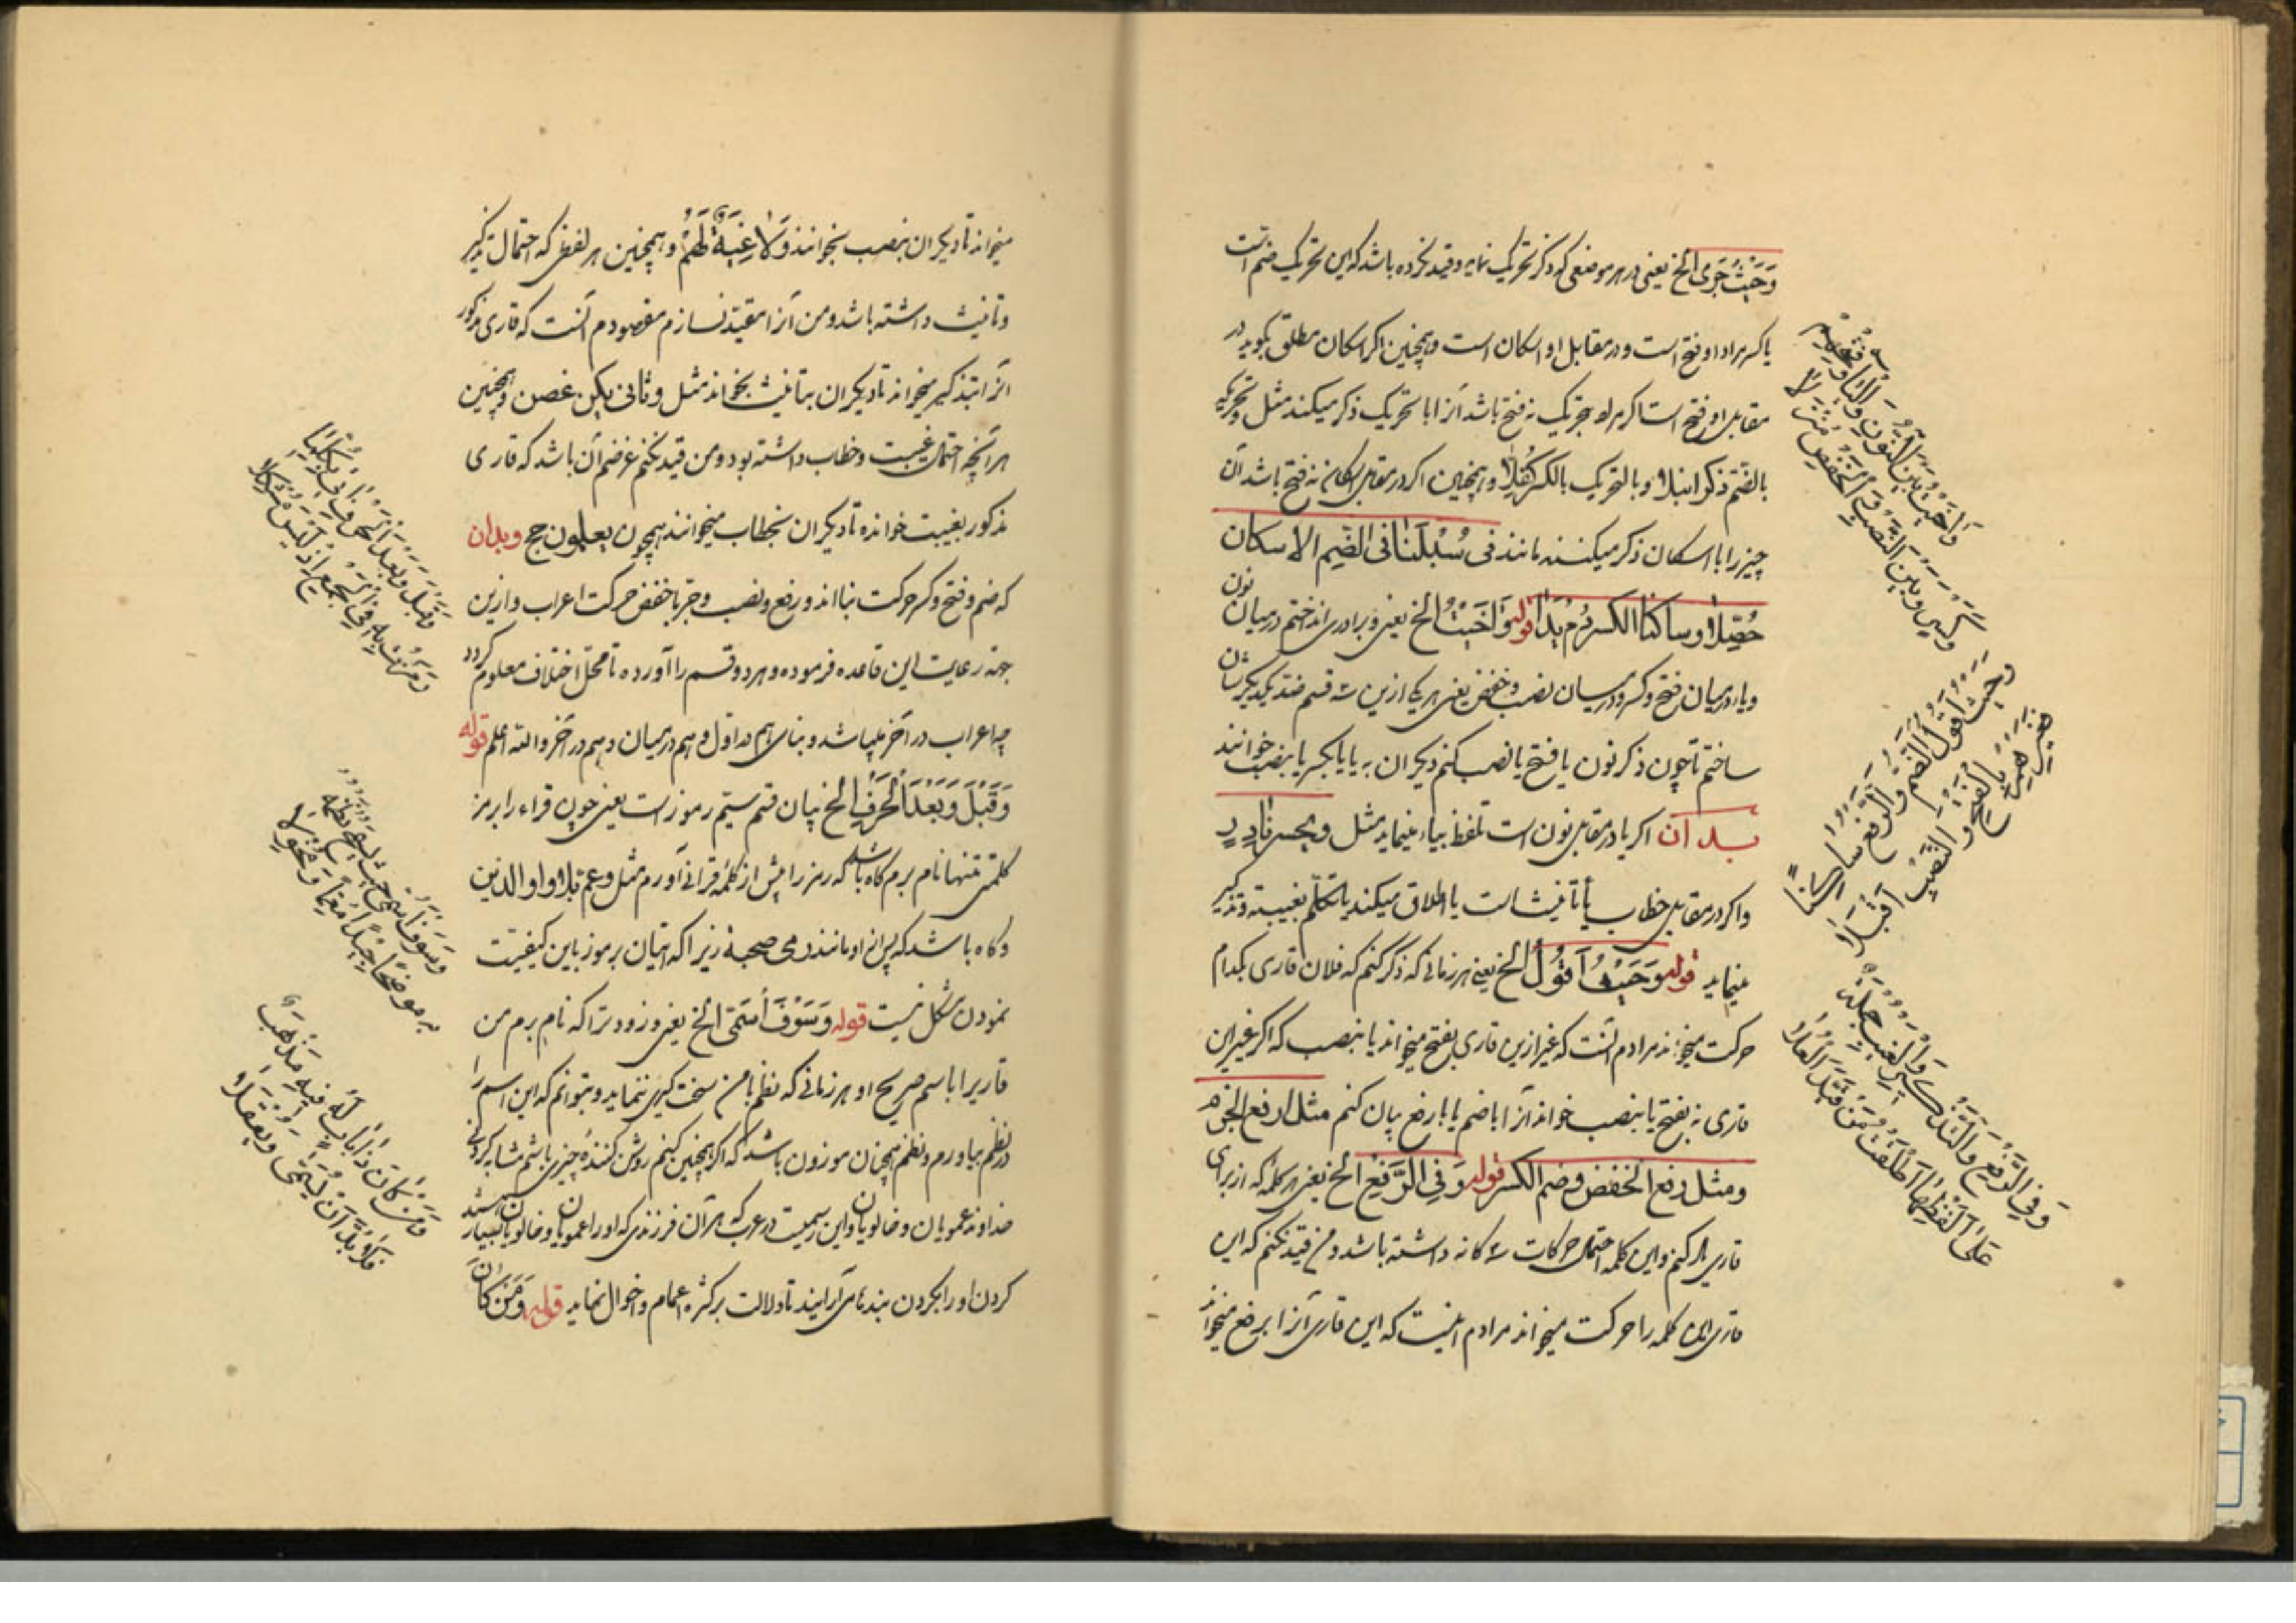 وَحَيْثُ جَرَى الخ یعنی در هر موضعی که ذکر تحریک نماید و قید نکرده باشد که این تحریک ضم است
یا کسر مراد او فتح است و در مقابل او اسکان است و همچنین اکر اسکان مطلق بکوید در
مقابل او فتح است اکر مراد بتحریک نه فتح باشد آنرا با تحریک ذکر میکند مثل وتحریکه
بالضم ذکرا نبلا وبالتحریک بالکسر کُفِلا و همچنین اکر در مقابل اسکان نه فتح باشد آن
چیز را با اسکان ذکر میکنند مانند فی سُبْلَنَا فی الضّم الاسکان
حُصِّلا وساکنا الکسر دُم یَدًا قوله وَاخَيْتُ الخ یعنی و برادری انداختم درمیان نون
و یا و درمیان فتح و کسر و درمیان نصب و خفض یعنی هر یکی ازین سه قسم ضد یکدیکرشان
ساختم تا چون ذکر نون یا فتح یا نصب کنم دیکران به یا یا بکسر یا بنصب خوانند
بدان اکر یا در مقابل نون است تلفظ بیاء مینماید مثل
واکر در مقابل خطاب یا تأنیث است یا اطلاق میکند یا تکلّم بغیبت و تذکیر
مینماید قوله وَحَيْثُ اَقُولُ الخ یعنی هر زمانی که ذکر کنم که فلان قاری بکدام
حرکت میخواند مرادم آنست که غیر ازین قاری بفتح میخواند یا بنصب که اکر غیر این
قاری نه بفتح یا بنصب خواند آنرا با ضم یا با رفع بیان کنم مثل ارفع الجزم
ومثل رفع الخفض وضم الکسر قوله وَفِی الرَّفْعِ الخ یعنی هر کلمه که از برای
قاری ذکر کنم و این کلمه احتمال حرکات سه کانه داشته باشد و من قید نکنم که این
قاری این کلمه را حرکت میخواند مرادم اینست که این قاری آنرا برفع میخواند
وَاخَيْتُ بَيْنَ النُّونِ وَالْيَا وَفَتْحِهِمْ
وَكَسْرٍ وَبَيْنَ النَّصْبِ وَالْخَفْضِ مُنْزِلَا
وَحَيْثُ اَقُولُ الضَّمُّ وَالرَّفْعُ سَاكِتًا
فَغَيْرُهُمْ بِالْفَتْحِ وَالنَّصْبِ اَقْبَلَا
وَفِي الرَّفْعِ وَالتَّذْكِيرِ وَالْغَيْبِ جُمْلَةٌ
عَلَى لَفْظِهَا اَطْلَقْتُ مَنْ قَيَّدَ الْعُلَا
میخواند تا دیکران بنصب بخوانند وَلَاغِيَةٌ لَهُمْ و همچنین هر لفظی که احتمال تذکیر
و تانیث داشته باشد و من آنرا مقیّد نسازم مقصودم آنست که قاری مذکور
آنرا بتذکیر میخواند تا دیکران بتانیث بخوانند مثل وثانی یکن غصن و همچنین
هر آنچه احتمال غیبت و خطاب داشته بود و من قید نکنم غرضم آن باشد که قاری
مذکور بغیبت خوانده تا دیکران بخطاب میخوانند همچون یعلمون حج وبدان
که ضم و فتح و کسر حرکت بنااند و رفع و نصب و جر یا خفض حرکت اعراب و ازین
جهة رعایت این قاعده فرموده و هر دو قسم را آورده تا محلّ اختلاف معلوم کردد
چه اعراب در آخر میباشد و بنا هم در اوّل و هم درمیان و هم در آخر والله اعلم قوله
وَقَبْلَ وَبَعْدَ الْحَرْفِ الخ بیان قسم سیّم رموز است یعنی چون قراء را برمز
کلمتی تنها نام برم کاه باشد که رمز را پیش از کلمه قرآنی آورم مثل وعم بلا واو الذین
و کاه باشد که پس از او مانند رمی صحبة زیراکه اتیان برموز باین کیفیّت
نمودن مشکل نیست قوله وَسَوْفَ اُسَمِّی الخ یعنی و زود تراکه نام برم من
قاریرا باسم صریح او هر زمانی که نظم با من سخت کیری ننماید و بتوانم که این اسم را
در نظم بیاورم و نظم همچنان موزون باشد که اکر همچنین کنم روشن کنندهٔ چیزی باشم مشابه کردنی
خداوند عمویان و خالویان و این رسمیست در عرب که هر آن فرزندی که او را عمویان و خالویان بسیار باشند
کردن او را بکردن بندها می‌آرایند تا دلالت بر کثرة اعمام و اخوال نماید قوله وَمَنْ كَانَ
وَقَبْلَ وَبَعْدَ الْحَرْفِ آتِي بِكُلِّمَا
رَمَزْتُ بِهِ فِي الْجَمْعِ اِذْ لَيْسَ مُشْكِلَا
وَسَوْفَ اُسَمِّي حَيْثُ يَسْمَحُ نَظْمُهُ
بِهِ مُوضِحًا جِيدًا مُعَمًّا وَمُخْوَلَا
وَمَنْ كَانَ ذَا بَابٍ لَهُ فِيهِ مَذْهَبٌ
فَلَا بُدَّ اَنْ يُسْمَى وَيُعْقَلَا